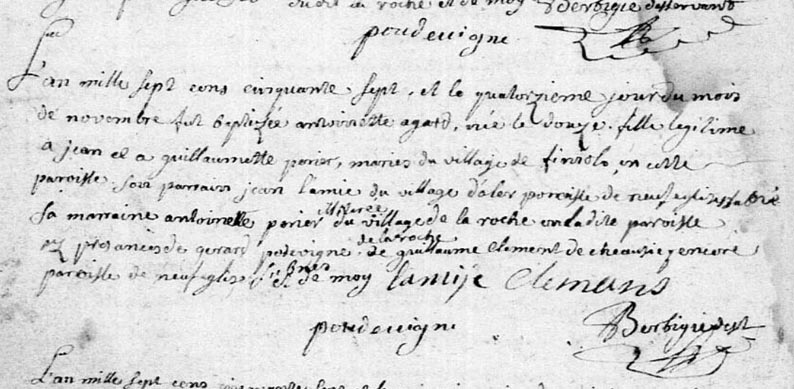 du dit la roche et de moy Berbigie desservant
poudevigne
L'an mille sept cens cinquante sept, et le quatorzieme jour du mois
de novembre fut baptizée antoinette agard, née le douze, fille legitime
a jean et a guillaumette perier, mariés du village de finiolo, en cette
paroisse. son parrain jean lamie du village d'aler paroisse de neufeglise
sa marraine antoinette perier illiterée du village de la roche en ladite paroisse
ez presances de gerard podevigne de la roche, de guillaume Clement de encore
paroisse de neufeglise et de moy lamije Clemans
poudevigne
Berbigie dest
L'an mille sept cens